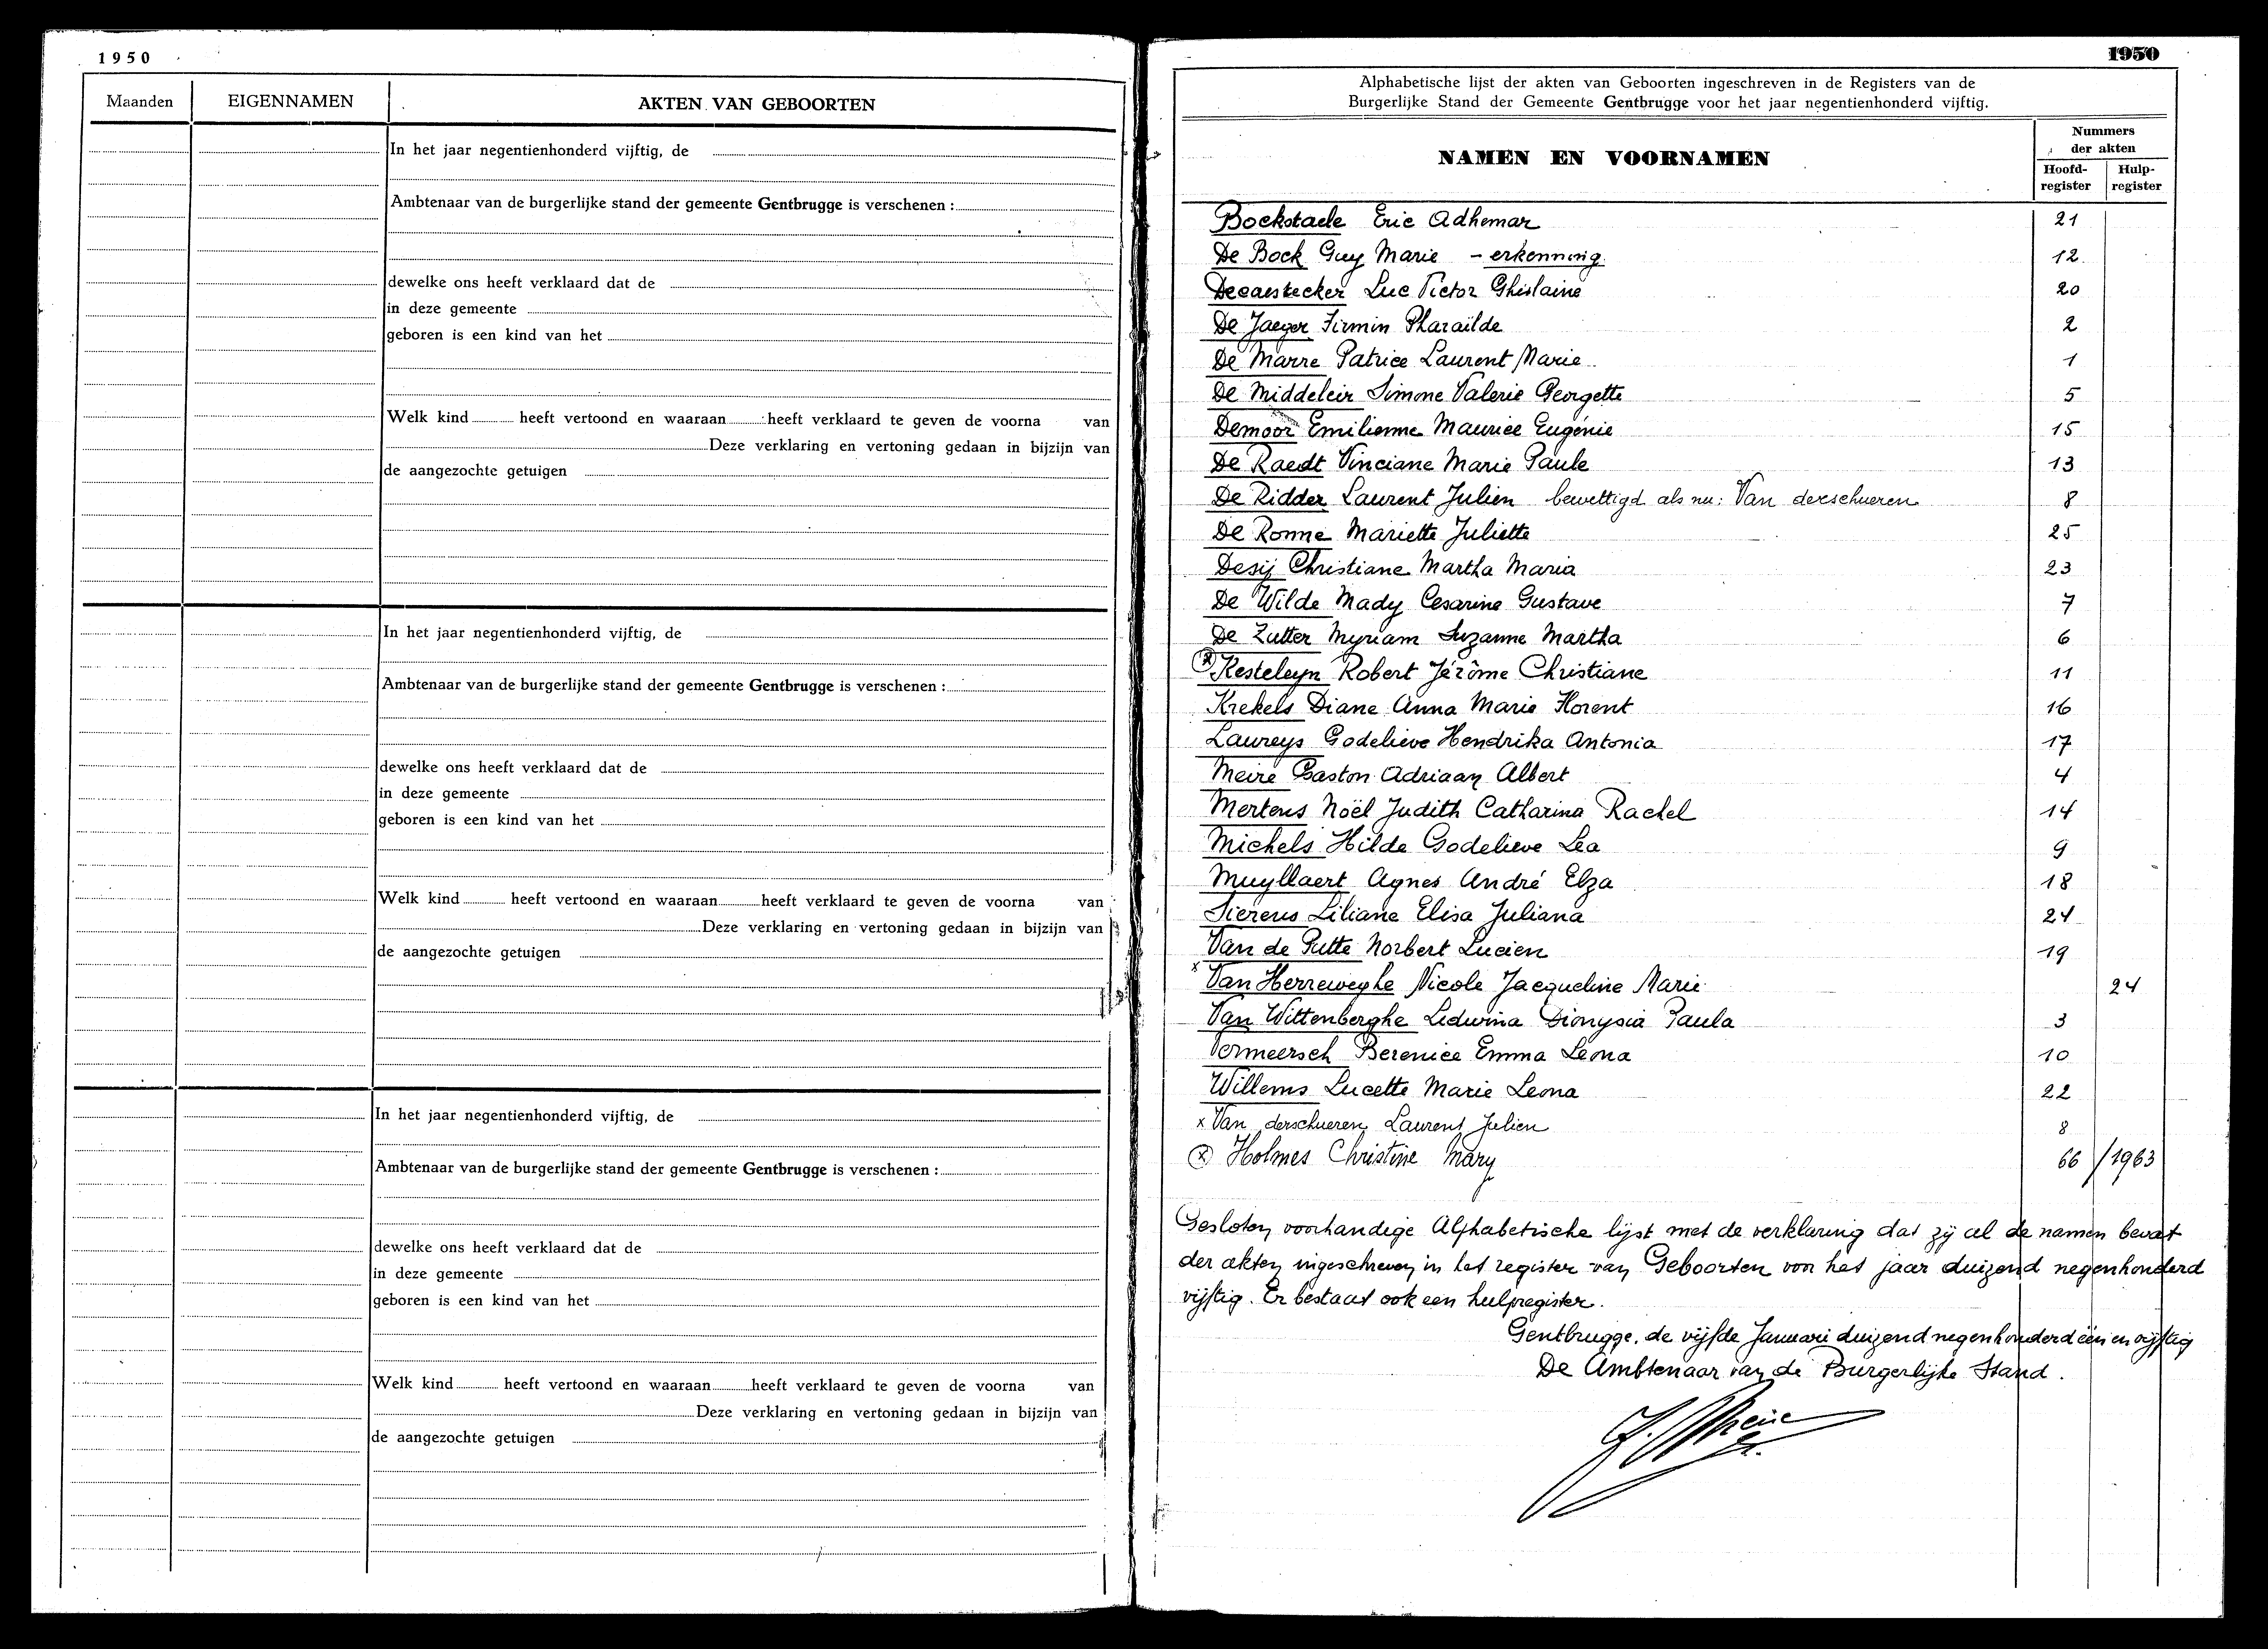 1950
Maanden EIGENNAMEN AKTEN VAN GEBOORTEN
In het jaar negentienhonderd vijftig, de
Ambtenaar van de burgerlijke stand der gemeente Gentbrugge is verschenen :
dewelke ons heeft verklaard dat de
in deze gemeente
geboren is een kind van het
Welk kind heeft vertoond en waaraan heeft verklaard te geven de voorna van
Deze verklaring en vertoning gedaan in bijzijn van
de aangezochte getuigen
In het jaar negentienhonderd vijftig, de
Ambtenaar van de burgerlijke stand der gemeente Gentbrugge is verschenen :
dewelke ons heeft verklaard dat de
in deze gemeente
geboren is een kind van het
Welk kind heeft vertoond en waaraan heeft verklaard te geven de voorna van
Deze verklaring en vertoning gedaan in bijzijn van
de aangezochte getuigen
In het jaar negentienhonderd vijftig, de
Ambtenaar van de burgerlijke stand der gemeente Gentbrugge is verschenen :
dewelke ons heeft verklaard dat de
in deze gemeente
geboren is een kind van het
Welk kind heeft vertoond en waaraan heeft verklaard te geven de voorna van
Deze verklaring en vertoning gedaan in bijzijn van
de aangezochte getuigen
1950
Alphabetische lijst der akten van Geboorten ingeschreven in de Registers van de
Burgerlijke Stand der Gemeente Gentbrugge voor het jaar negentienhonderd vijftig.
NAMEN EN VOORNAMEN
Nummers
der akten
Hoofd- Hulp-
register register
Bockstaele Eric Adhemar 21
De Bock Guy Marie - erkenning 12
Decaestecker Luc Victor Ghislaine 20
De Jaeger Firmin Pharaïlde 2
De Marre Patrice Laurent Marie 1
De Middeleir Simone Valerie Georgette 5
Demoor Emilienne Maurice Eugénie 15
De Raedt Vinciane Marie Paule 13
De Ridder Laurent Julien bewettigd als nu: Van derschueren 8
De Ronne Mariette Juliette 25
Desij Christiane Martha Maria 23
De Wilde Mady Cesarine Gustave 7
De Zutter Myriam Suzanne Martha 6
(x) Kesteleyn Robert Jérôme Christiane 11
Krekels Diane Anna Marie Florent 16
Laureys Godelieve Hendrika Antonia 17
Meire Gaston Adriaan Albert 4
Mertens Noël Judith Catharina Rachel 14
Michels Hilde Godelieve Lea 9
Muyllaert Agnes André Elza 18
Sierens Liliane Elisa Juliana 24
Van de Putte Norbert Lucien 19
x Van Herreweghe Nicole Jacqueline Marie 24
Van Wittenberghe Ledwina Dionysia Paula 3
Vermeersch Berenice Emma Leona 10
Willems Lucette Marie Leona 22
x Van derschueren Laurent Julien 8
(x) Holmes Christine Mary 66 / 1963
Gesloten voorhandige Alphabetische lijst met de verklaring dat zij al de namen bevat
der akten ingeschreven in het register van Geboorten voor het jaar duizend negenhonderd
vijftig. Er bestaat ook een hulpregister.
Gentbrugge, de vijfde Januari duizend negenhonderd één en vijftig
De Ambtenaar van de Burgerlijke Stand.